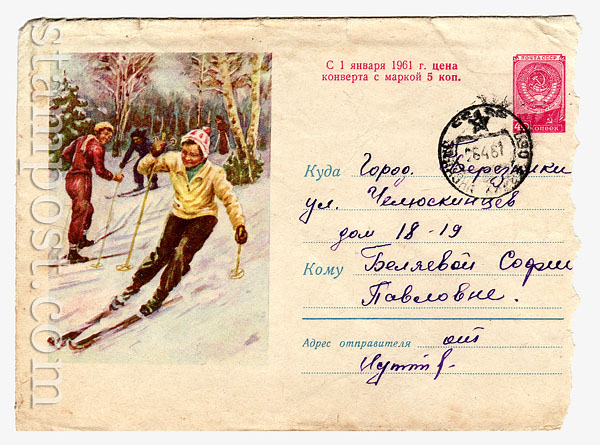 С 1 января 1961 г. цена
конверта с маркой 5 коп.
ПОЧТА СССР
40 КОПЕЕК
26461
Куда Город. Березники
ул. Челюскинцев
дом 18-19
Кому Беляевой Софии
Павловне.
Адрес отправителя от
stampost.com
stampost.com